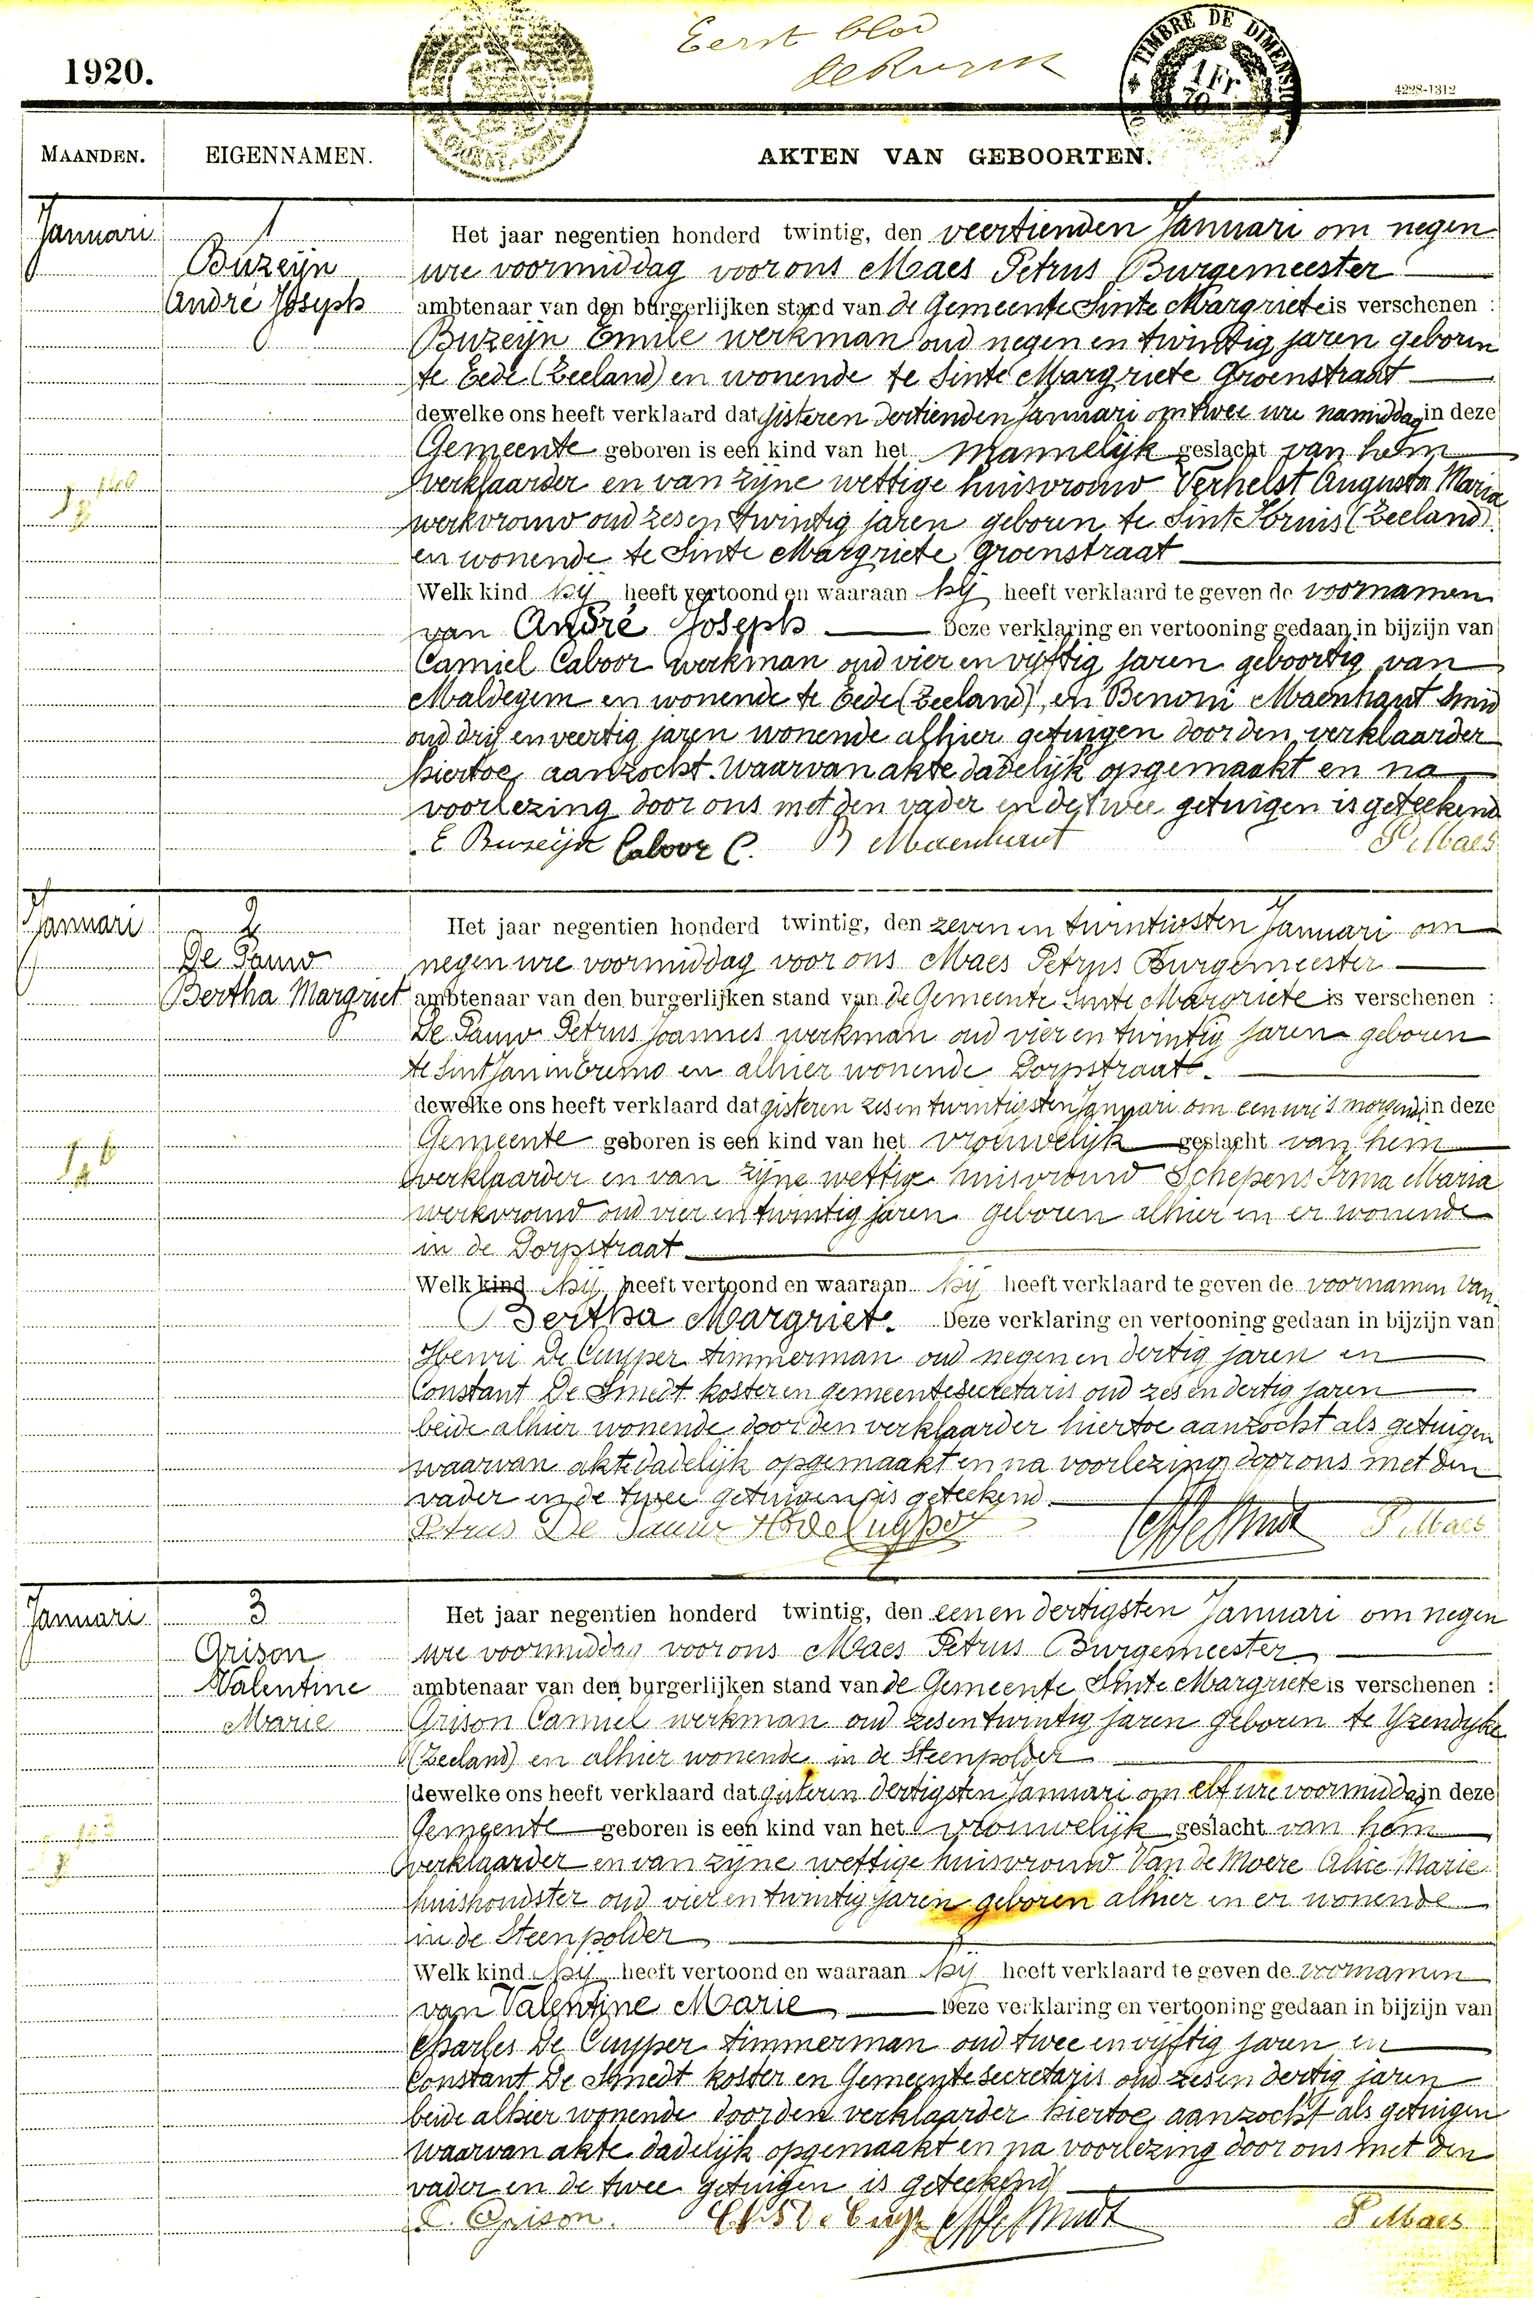 1920.
Eerst blad
TIMBRE DE DIMENSION
1 Fr
4228-1312
MAANDEN.
EIGENNAMEN.
AKTEN VAN GEBOORTEN.
Januari
1
Buzeijn
André Joseph
Het jaar negentien honderd twintig, den veertienden Januari om negen
ure voormiddag voor ons Maes Petrus Burgemeester
ambtenaar van den burgerlijken stand van de Gemeente Sinte Margriete is verschenen :
Buzeijn Emile werkman oud negen en twintig jaren geboren
te Eede (Zeeland) en wonende te Sinte Margriete Groenstraat
dewelke ons heeft verklaard dat gisteren dertienden Januari om twee ure namiddag in deze
Gemeente geboren is een kind van het mannelijk geslacht van hem
verklaarder en van zijne wettige huisvrouw Verhelst Augusta Maria
werkvrouw oud zes en twintig jaren geboren te Sint Kruis (Zeeland)
en wonende te Sinte Margriete Groenstraat
Welk kind hij heeft vertoond en waaraan hij heeft verklaard te geven de voornamen
van André Joseph Deze verklaring en vertooning gedaan in bijzijn van
Camiel Caboor werkman oud vier en vijftig jaren geboortig van
Maldegem en wonende te Eede (Zeeland), en Benoni Maenhaut smid
oud drij en veertig jaren wonende alhier getuigen door den verklaarder
hiertoe aanzocht. Waarvan akte dadelijk opgemaakt en na
voorlezing door ons met den vader en de twee getuigen is geteekend
E Buzeijn Caboor C. B Maenhaut P Maes
Januari
2
De Pauw
Bertha Margriet
Het jaar negentien honderd twintig, den zeven en twintigsten Januari om
negen ure voormiddag voor ons Maes Petrus Burgemeester
ambtenaar van den burgerlijken stand van de Gemeente Sinte Margriete is verschenen :
De Pauw Petrus Joannes werkman oud vier en twintig jaren geboren
te Sint Jan in Eremo en alhier wonende Dorpstraat.
dewelke ons heeft verklaard dat gisteren zes en twintigsten Januari om een ure 's morgends in deze
Gemeente geboren is een kind van het vrouwelijk geslacht van hem
verklaarder en van zijne wettige huisvrouw Schepens Irma Maria
werkvrouw oud vier en twintig jaren geboren alhier en er wonende
in de Dorpstraat
Welk kind hij heeft vertoond en waaraan hij heeft verklaard te geven de voornamen van
Bertha Margriet. Deze verklaring en vertooning gedaan in bijzijn van
Henri De Cuyper timmerman oud negen en dertig jaren en
Constant De Smedt koster en gemeentesecretaris oud zes en dertig jaren
beide alhier wonende door den verklaarder hiertoe aanzocht als getuigen
waarvan akte dadelijk opgemaakt en na voorlezing door ons met den
vader en de twee getuigen is geteekend
Petrus De Pauw H De Cuyper C De Smedt P Maes
Januari
3
Grison
Valentine
Marie
Het jaar negentien honderd twintig, den een en dertigsten Januari om negen
ure voormiddag voor ons Maes Petrus Burgemeester
ambtenaar van den burgerlijken stand van de Gemeente Sinte Margriete is verschenen :
Grison Camiel werkman oud zes en twintig jaren geboren te Yzendyke
(Zeeland) en alhier wonende in de Steenpolder
dewelke ons heeft verklaard dat gisteren dertigsten Januari om elf ure voormiddag in deze
Gemeente geboren is een kind van het vrouwelijk geslacht van hem
verklaarder en van zijne wettige huisvrouw Van de Moere Alice Marie
huishoudster oud vier en twintig jaren geboren alhier en er wonende
in de Steenpolder
Welk kind hij heeft vertoond en waaraan hij heeft verklaard te geven de voornamen
van Valentine Marie Deze verklaring en vertooning gedaan in bijzijn van
Charles De Cuyper timmerman oud twee en vijftig jaren en
Constant De Smedt koster en Gemeentesecretaris oud zes en dertig jaren
beide alhier wonende door den verklaarder hiertoe aanzocht als getuigen
waarvan akte dadelijk opgemaakt en na voorlezing door ons met den
vader en de twee getuigen is geteekend
C. Grison. C De Smedt P Maes